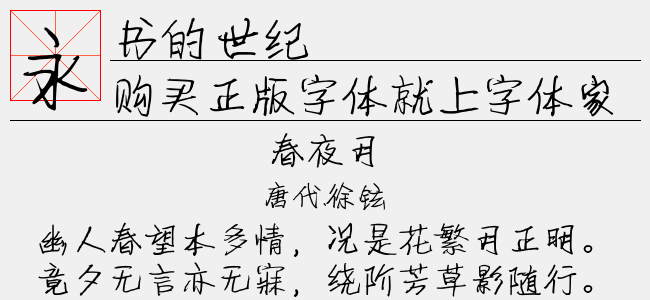 永
书的世纪
购买正版字体就上字体家
春夜月
唐代徐铉
幽人春望本多情，况是花繁月正明。
竟夕无言亦无寐，绕阶芳草影随行。